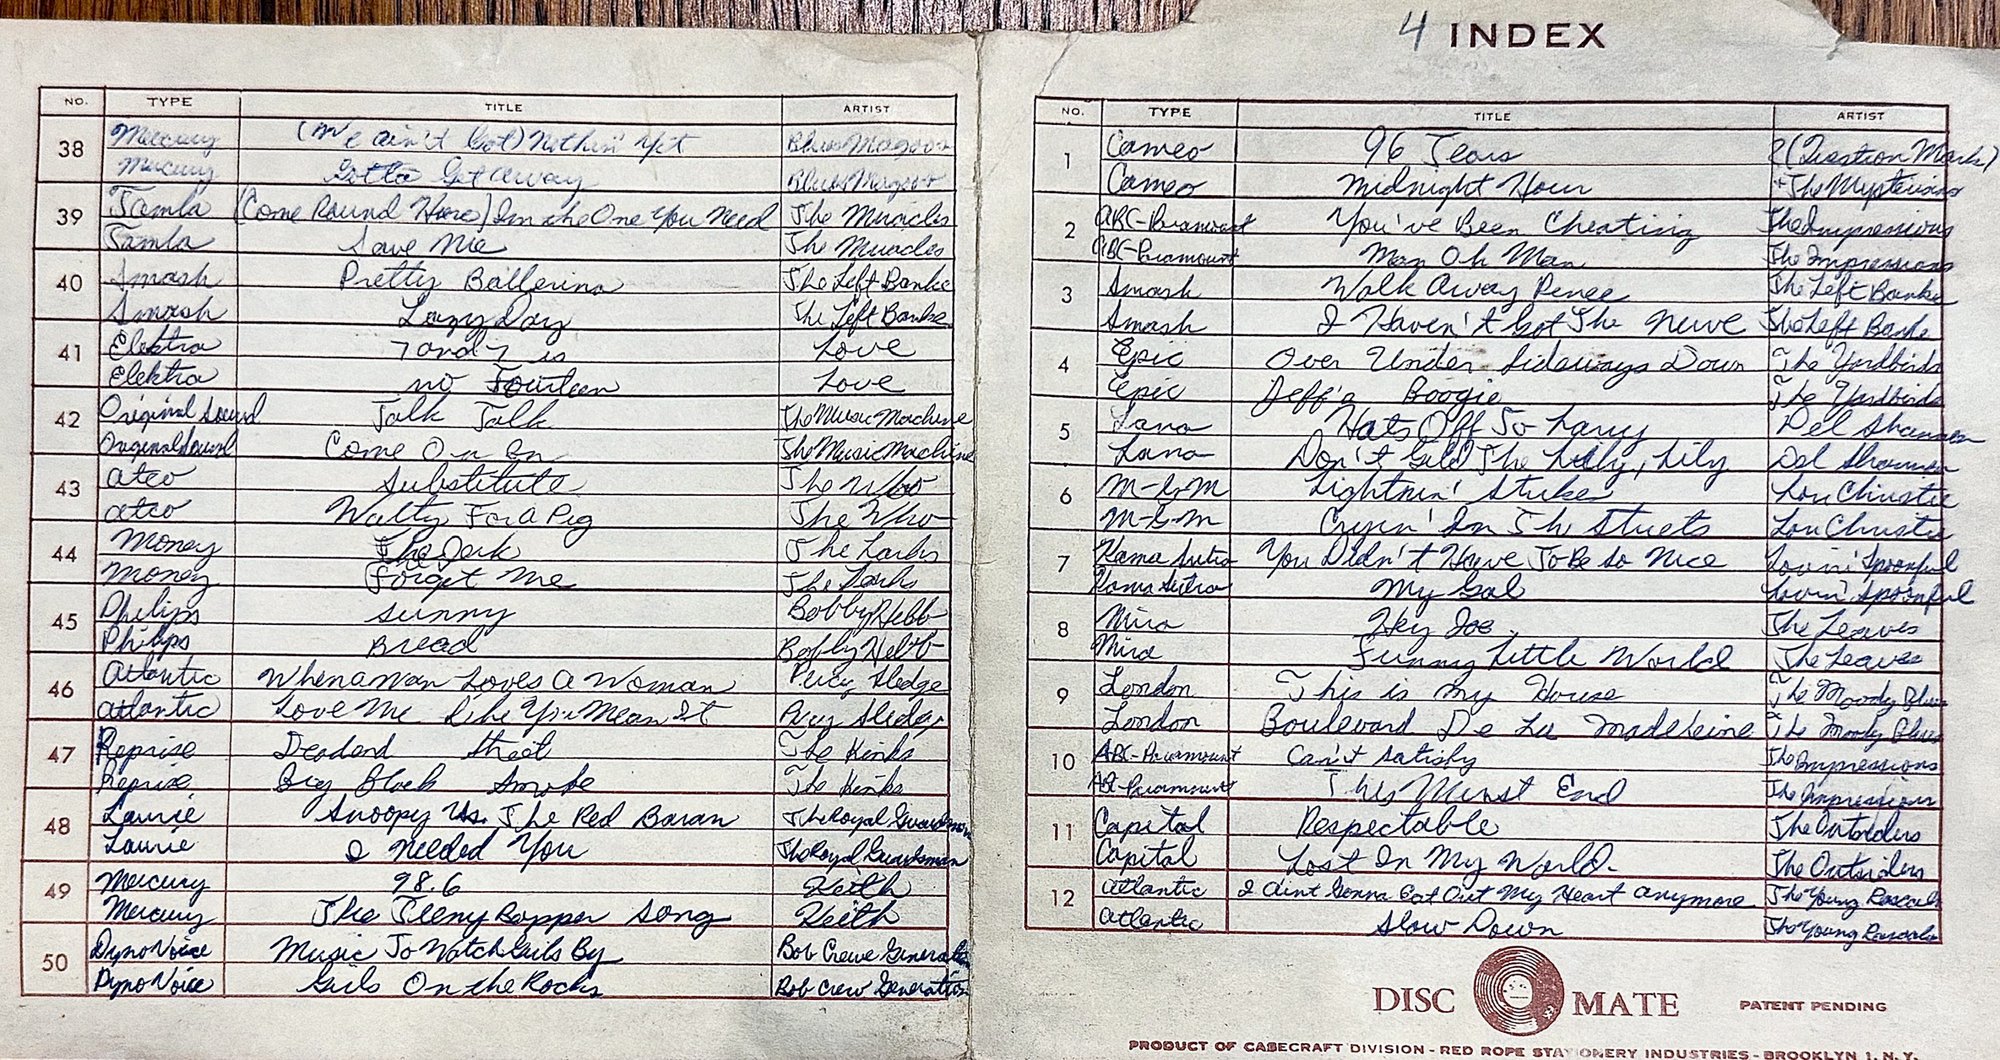 NO. TYPE TITLE ARTIST
38 Mercury (We ain't Got) Nothin' Yet Blues Magoos
Mercury Gotta Get Away Blues Magoos
39 Tamla (Come Round Here) I'm the One You Need The Miracles
Tamla Save Me The Miracles
40 Smash Pretty Ballerina The Left Banke
Smash Lazy Day The Left Banke
41 Elektra 7 and 7 is Love
Elektra No Fourteen Love
42 Original Sound Talk Talk The Music Machine
Original Sound Come On In The Music Machine
43 Atco Substitute The Who
Atco Waltz For a Pig The Who
44 Money The Jerk The Larks
Money Forget Me The Larks
45 Philips Sunny Bobby Hebb
Philips Bread Bobby Hebb
46 Atlantic When a Man Loves a Woman Percy Sledge
Atlantic Love Me Like You Mean It Percy Sledge
47 Reprise Deadend Street The Kinks
Reprise Big Black Smoke The Kinks
48 Laurie Snoopy Vs. The Red Baron The Royal Guardsmen
Laurie I Needed You The Royal Guardsman
49 Mercury 98.6 Keith
Mercury The Teeny Bopper Song Keith
50 DynoVoice Music To Watch Girls By Bob Crewe Generation
DynoVoice Girls On the Rocks Bob Crew Generation
4 INDEX
NO. TYPE TITLE ARTIST
1 Cameo 96 Tears ? (Question Mark)
Cameo Midnight Hour + The Mysterians
2 ABC-Paramount You've Been Cheating The Impressions
ABC-Paramount Man Oh Man The Impressions
3 Smash Walk Away Renee The Left Banke
Smash I Haven't Got The Nerve The Left Banke
4 Epic Over Under Sideways Down The Yardbirds
Epic Jeff's Boogie The Yardbirds
5 Lana Hats Off To Larry Del Shannon
Lana Don't Gild The Lilly, Lily Del Shannon
6 M-G-M Lightnin' Strikes Lou Christie
M-G-M Cryin' In Th Streets Lou Christie
7 Kama Sutra You Didn't Have To Be So Nice Lovin' Spoonful
Kama Sutra My Gal Lovin' Spoonful
8 Mira Hey Joe The Leaves
Mira Funny Little World The Leaves
9 London This is My House The Moody Blues
London Boulevard De La Madeleine The Moody Blues
10 ABC-Paramount Can't Satisfy The Impressions
ABC-Paramount This Must End The Impressions
11 Capital Respectable The Outsiders
Capital Lost In My World The Outsiders
12 Atlantic I Aint Gonna Eat Out My Heart Anymore The Young Rascals
Atlantic Slow Down The Young Rascals
DISC MATE PATENT PENDING
PRODUCT OF CASECRAFT DIVISION - RED ROPE STATIONERY INDUSTRIES - BROOKLYN 1, N.Y.